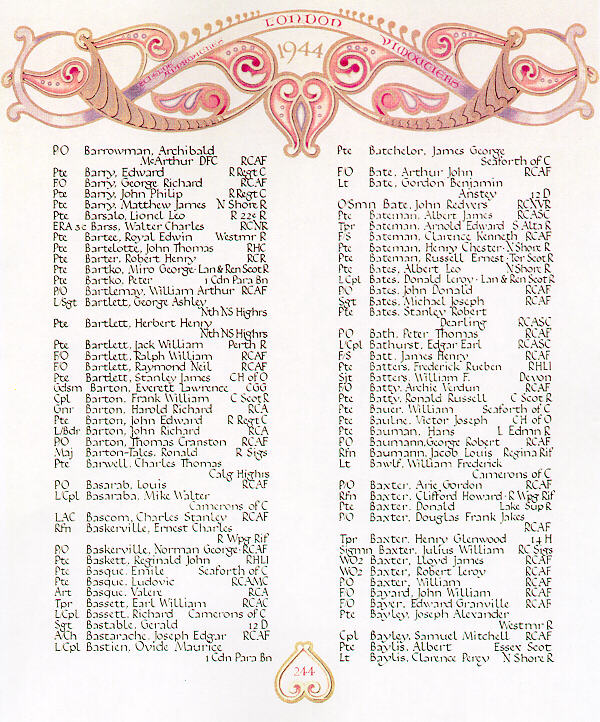 LONDON
VIMOUTIERS
1944
P.O Barrowman, Archibald
McArthur DFC RCAF
Pte Barry, Edward R Regt C
F/O Barry, George Richard RCAF
Pte Barry, John Philip R Regt C
Pte Barry, Matthew James N Shore R
Pte Barsalo, Lionel Leo R 22e R
ERA 3c Barss, Walter Charles RCNR
Pte Bartee, Royal Edwin Westmr R
Pte Bartelotte, John Thomas RHC
Pte Barter, Robert Henry RCR
Pte Bartko, Miro George·Lan & Ren Scot R
Pte Bartko, Peter 1 Cdn Para Bn
P/O Bartlemay, William Arthur RCAF
L/Sgt Bartlett, George Ashley
Nth NS Highrs
Pte Bartlett, Herbert Henry
Nth NS Highrs
Pte Bartlett, Jack William Perth R
F/O Bartlett, Ralph William RCAF
F/O Bartlett, Raymond Neil RCAF
Pte Bartlett, Stanley James CH of O
Gdsm Barton, Everett Lawrence CGG
Cpl Barton, Frank William C Scot R
Gnr Barton, Harold Richard RCA
Pte Barton, John Edward R Regt C
L/Bdr Barton, John Richard RCA
P/O Barton, Thomas Cranston RCAF
Maj Barton-Tales, Ronald R Sigs
Pte Barwell, Charles Thomas
Calg Highrs
P/O Basarab, Louis RCAF
L/Cpl Basaraba, Mike Walter
Camerons of C
LAC Bascom, Charles Stanley RCAF
Rfn Baskerville, Ernest Charles
R Wpg Rif
P/O Baskerville, Norman George·RCAF
Pte Baskett, Reginald John RHLI
Pte Basque, Emile Seaforth of C
Pte Basque, Ludovic RCAMC
Art Basque, Valere RCA
Tpr Bassett, Earl William RCAC
L/Cpl Bassett, Richard Camerons of C
Sgt Bastable, Gerald 12 D
A/Ch Bastarache, Joseph Edgar RCAF
L/Cpl Bastien, Ovide Maurice
1 Cdn Para Bn
Pte Batchelor, James George
Seaforth of C
F/O Bate, Arthur John RCAF
Lt Bate, Gordon Benjamin
Anstey 12 D
O/Smn Bate, John Redvers RCNVR
Pte Bateman, Albert James RCASC
Tpr Bateman, Arnold Edward S. Alta R
F/S Bateman, Clarence Kenneth RCAF
Pte Bateman, Henry Chester·N Shore R
Pte Bateman, Russell Ernest·Tor Scot R
Pte Bates, Albert Leo N Shore R
L/Cpl Bates, Donald Leroy·Lan & Ren Scot R
P/O Bates, John Donald RCAF
Sgt Bates, Michael Joseph RCAF
Pte Bates, Stanley Robert
Dearling RCASC
P/O Bath, Peter Thomas RCAF
L/Cpl Bathurst, Edgar Earl RCASC
F/S Batt, James Henry RCAF
Pte Batters, Frederick Rueben RHLI
Sjt Batters, William F. Devon
F/O Batty, Archie Verdun RCAF
Pte Batty, Ronald Russell C Scot R
Pte Bauer, William Seaforth of C
Pte Baulne, Victor Joseph CH of O
Pte Bauman, Hans L Edmn R
P/O Baumann, George Robert RCAF
Rfn Baumann, Jacob Louis Regina Rif
Lt Bawlf, William Frederick
Camerons of C
P/O Baxter, Arie Gordon RCAF
Rfn Baxter, Clifford Howard·R Wpg Rif
Pte Baxter, Donald Lake Sup R
P/O Baxter, Douglas Frank Jakes
RCAF
Tpr Baxter, Henry Glenwood 14 H
Sigmn Baxter, Julius William RC Sigs
WO2 Baxter, Lloyd James RCAF
WO2 Baxter, Robert Leroy RCAF
P/O Baxter, William RCAF
F/O Bayard, John William RCAF
F/O Bayer, Edward Granville RCAF
Pte Bayley, Joseph Alexander
Westmr R
Cpl Bayley, Samuel Mitchell RCAF
Pte Baylis, Albert Essex Scot
Lt Baylis, Clarence Percy N Shore R
244